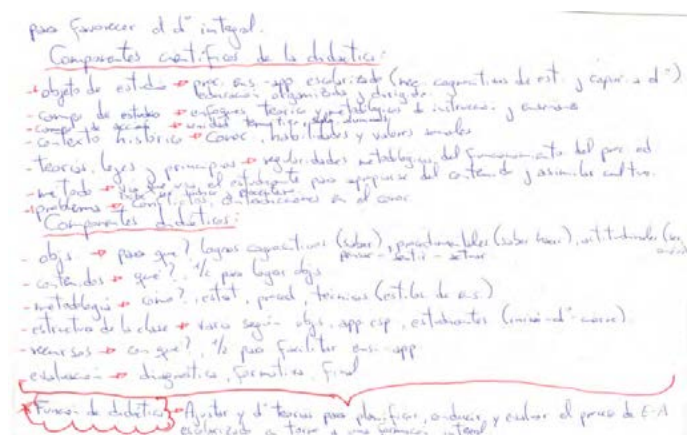 para favorecer el dº integral.
Componentes científicos de la didáctica:
- objeto de estudio → proc. ens-app escolarizado (nec. cognitivas de est. y capac. a dº)
educación organizada y dirigida
- campo de estudio → enfoques teórico y metodológicos de instrucción y enseñanza
- campo de acción → unidad temática
- contexto histórico → conoc, habilidades y valores sociales
- teorías, leyes y principios → regularidades metodológicas del funcionamiento del proc ed.
- método → que usa el estudiante para apropiarse del contenido y asimilar cultura.
- problema → conflictos, contradicciones en el conoc.
Componentes didácticos:
- objs → para que? logros cognoscitivos (saber), procedimentales (saber hacer), actitudinales (ser
pensar - sentir - actuar
- contenidos → qué?, % para lograr objs
- metodología → cómo?, estrat, proced, técnicas (estilos de ens.)
- estructura de la clase → varía según objs, app esp, estudiantes (inicio-dº-cierre)
- recursos → con qué?, % para facilitar ens-app
evaluación → diagnóstica, formativa, final
Función de didáctica → y dº teorías para planificar, conducir, y evaluar el proceso de E-A
escolarizado en torno a una formación integral